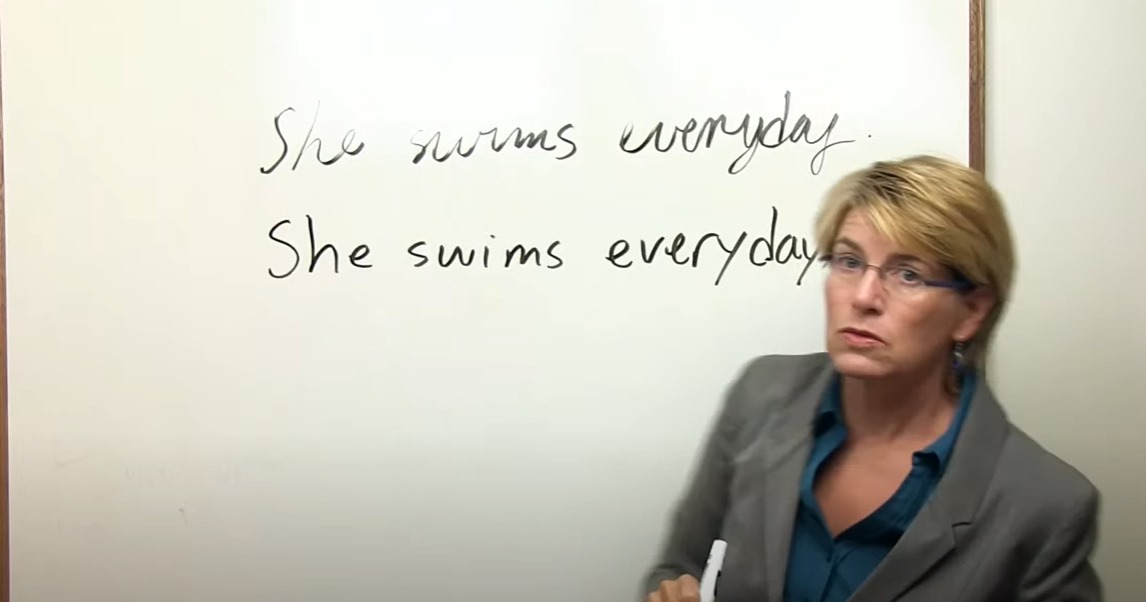 She swims everyday.
She swims everyday